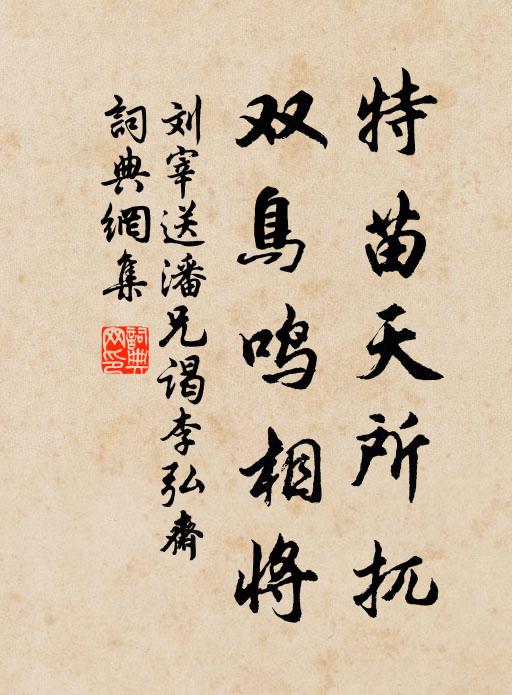 特苗天所扤
双鳥鸣相将
刘宰送潘兄谒李弘齋
詞典網集
詞典网印